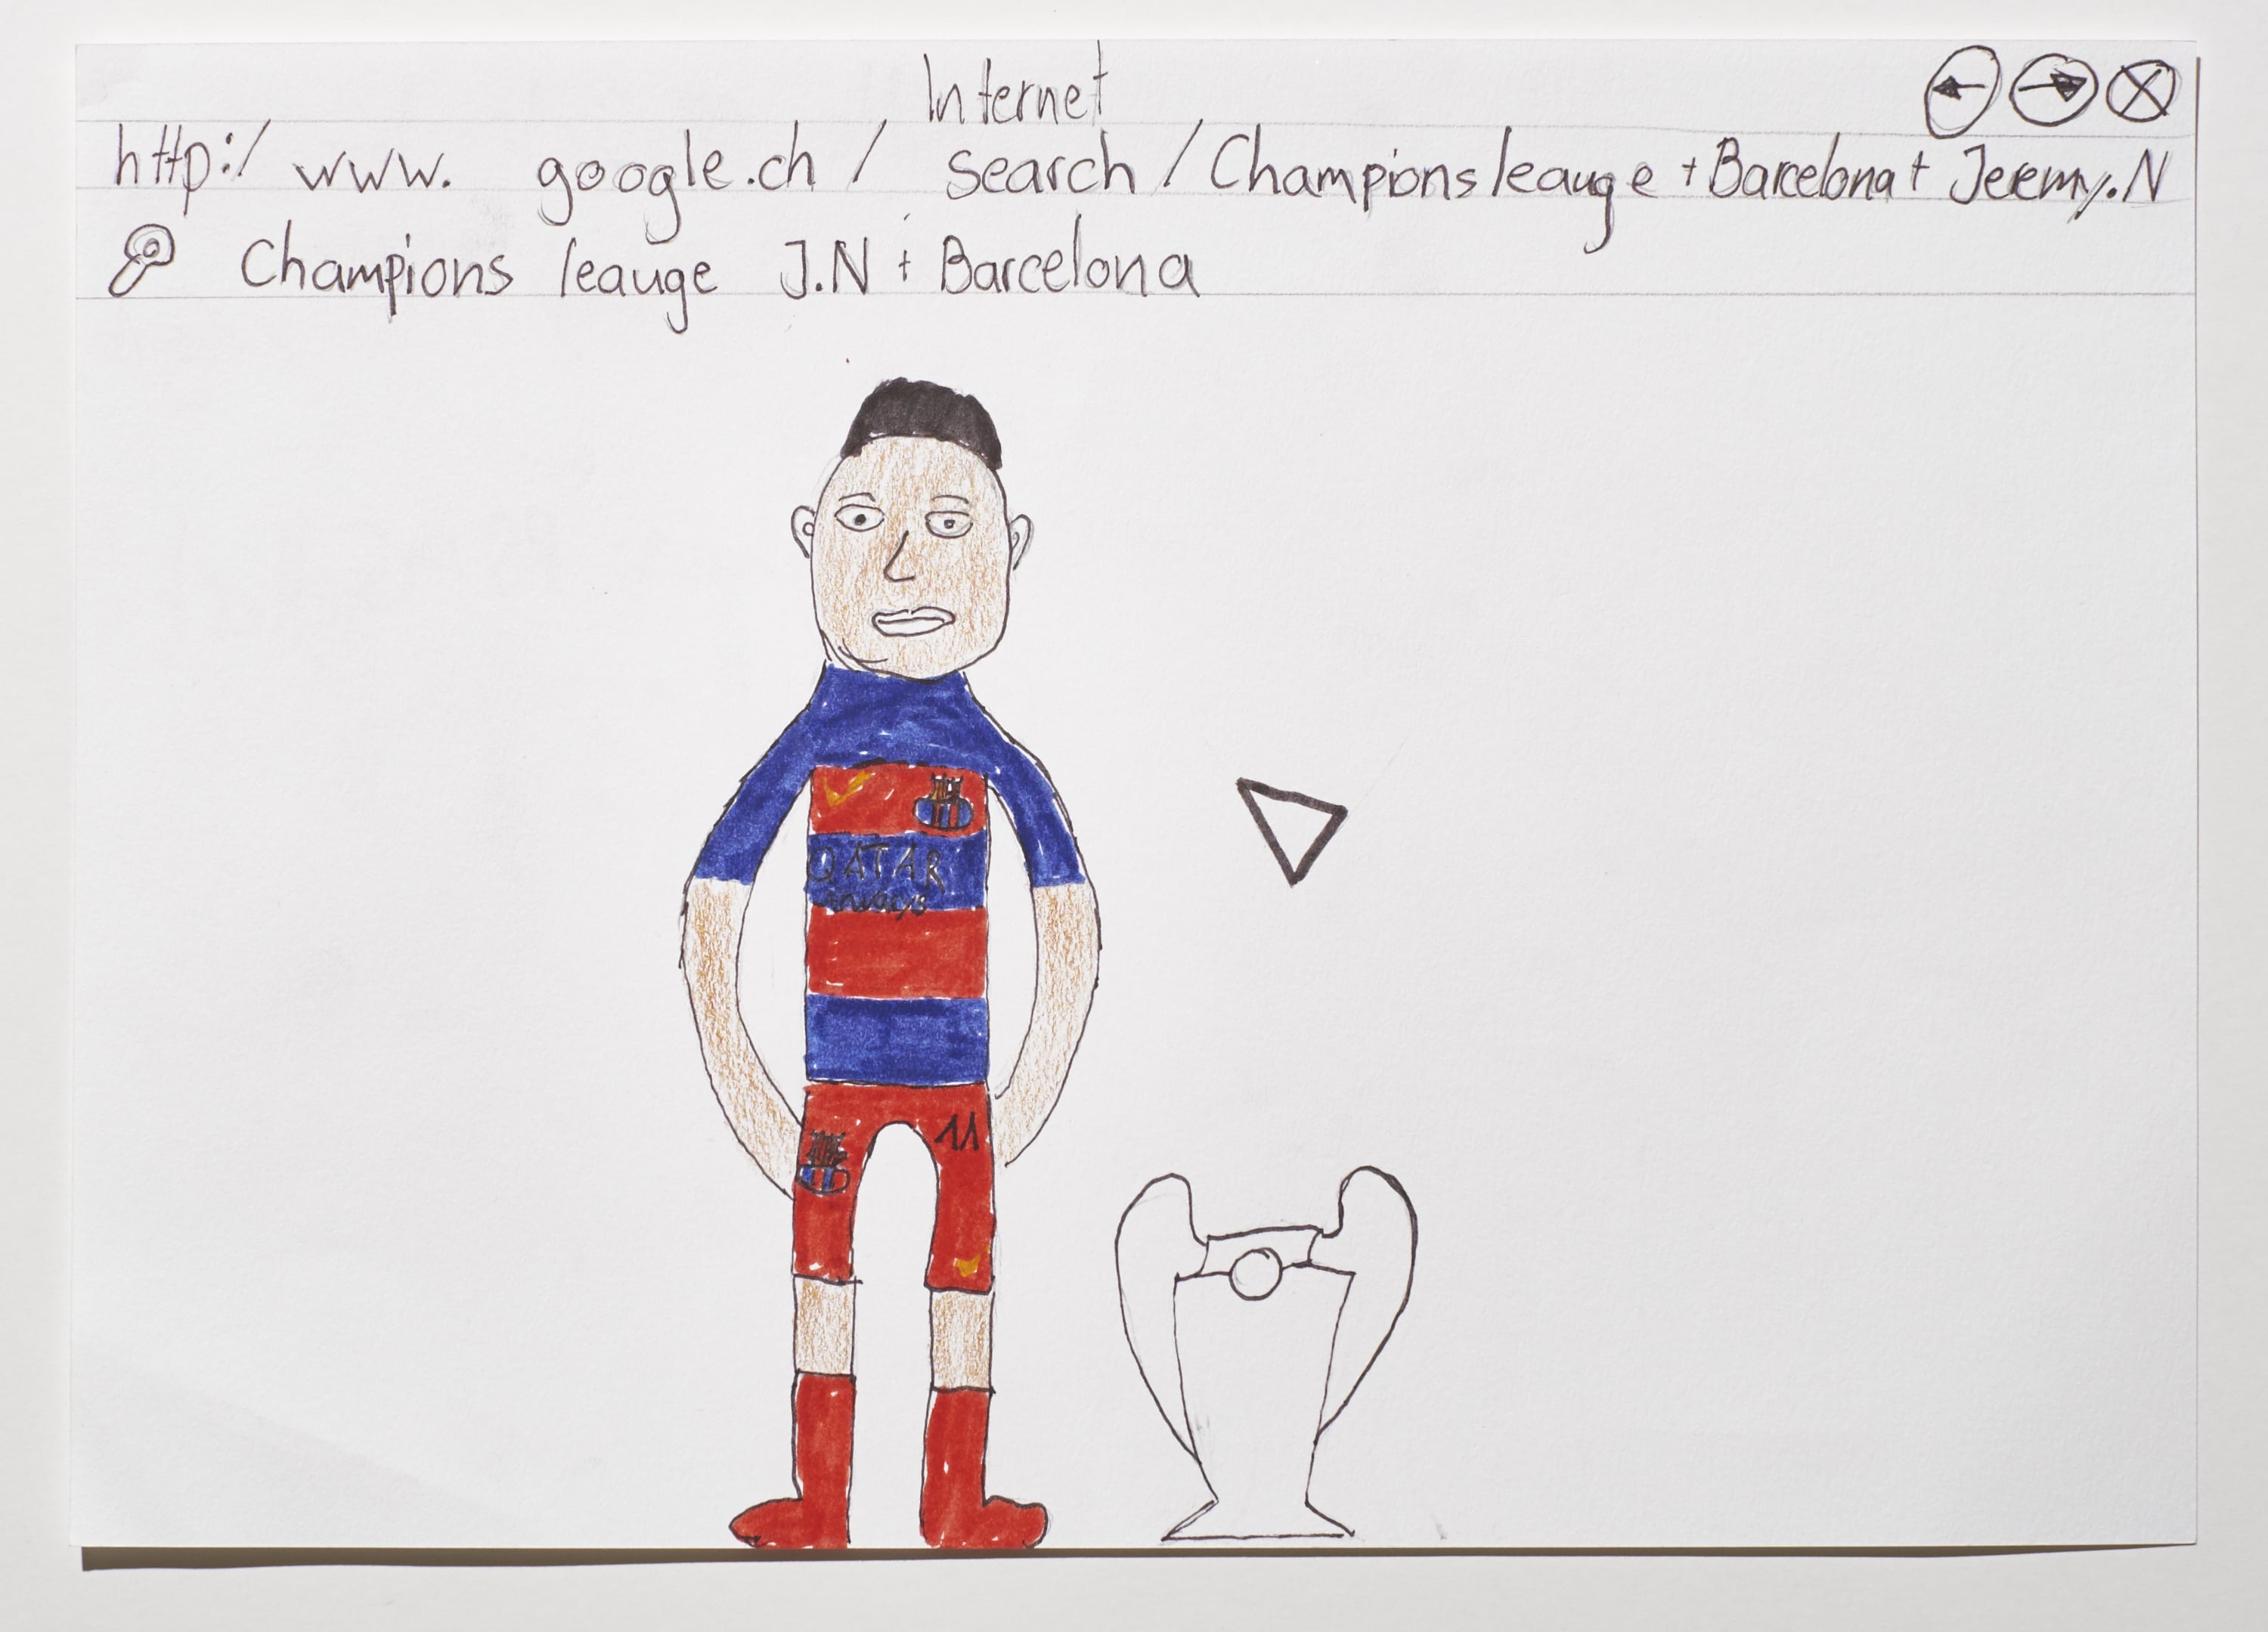 Internet
http:/ www. google.ch / search / Champions leauge + Barcelona + Jeremy.N
Champions leauge J.N + Barcelona
QATAR
Airways
11